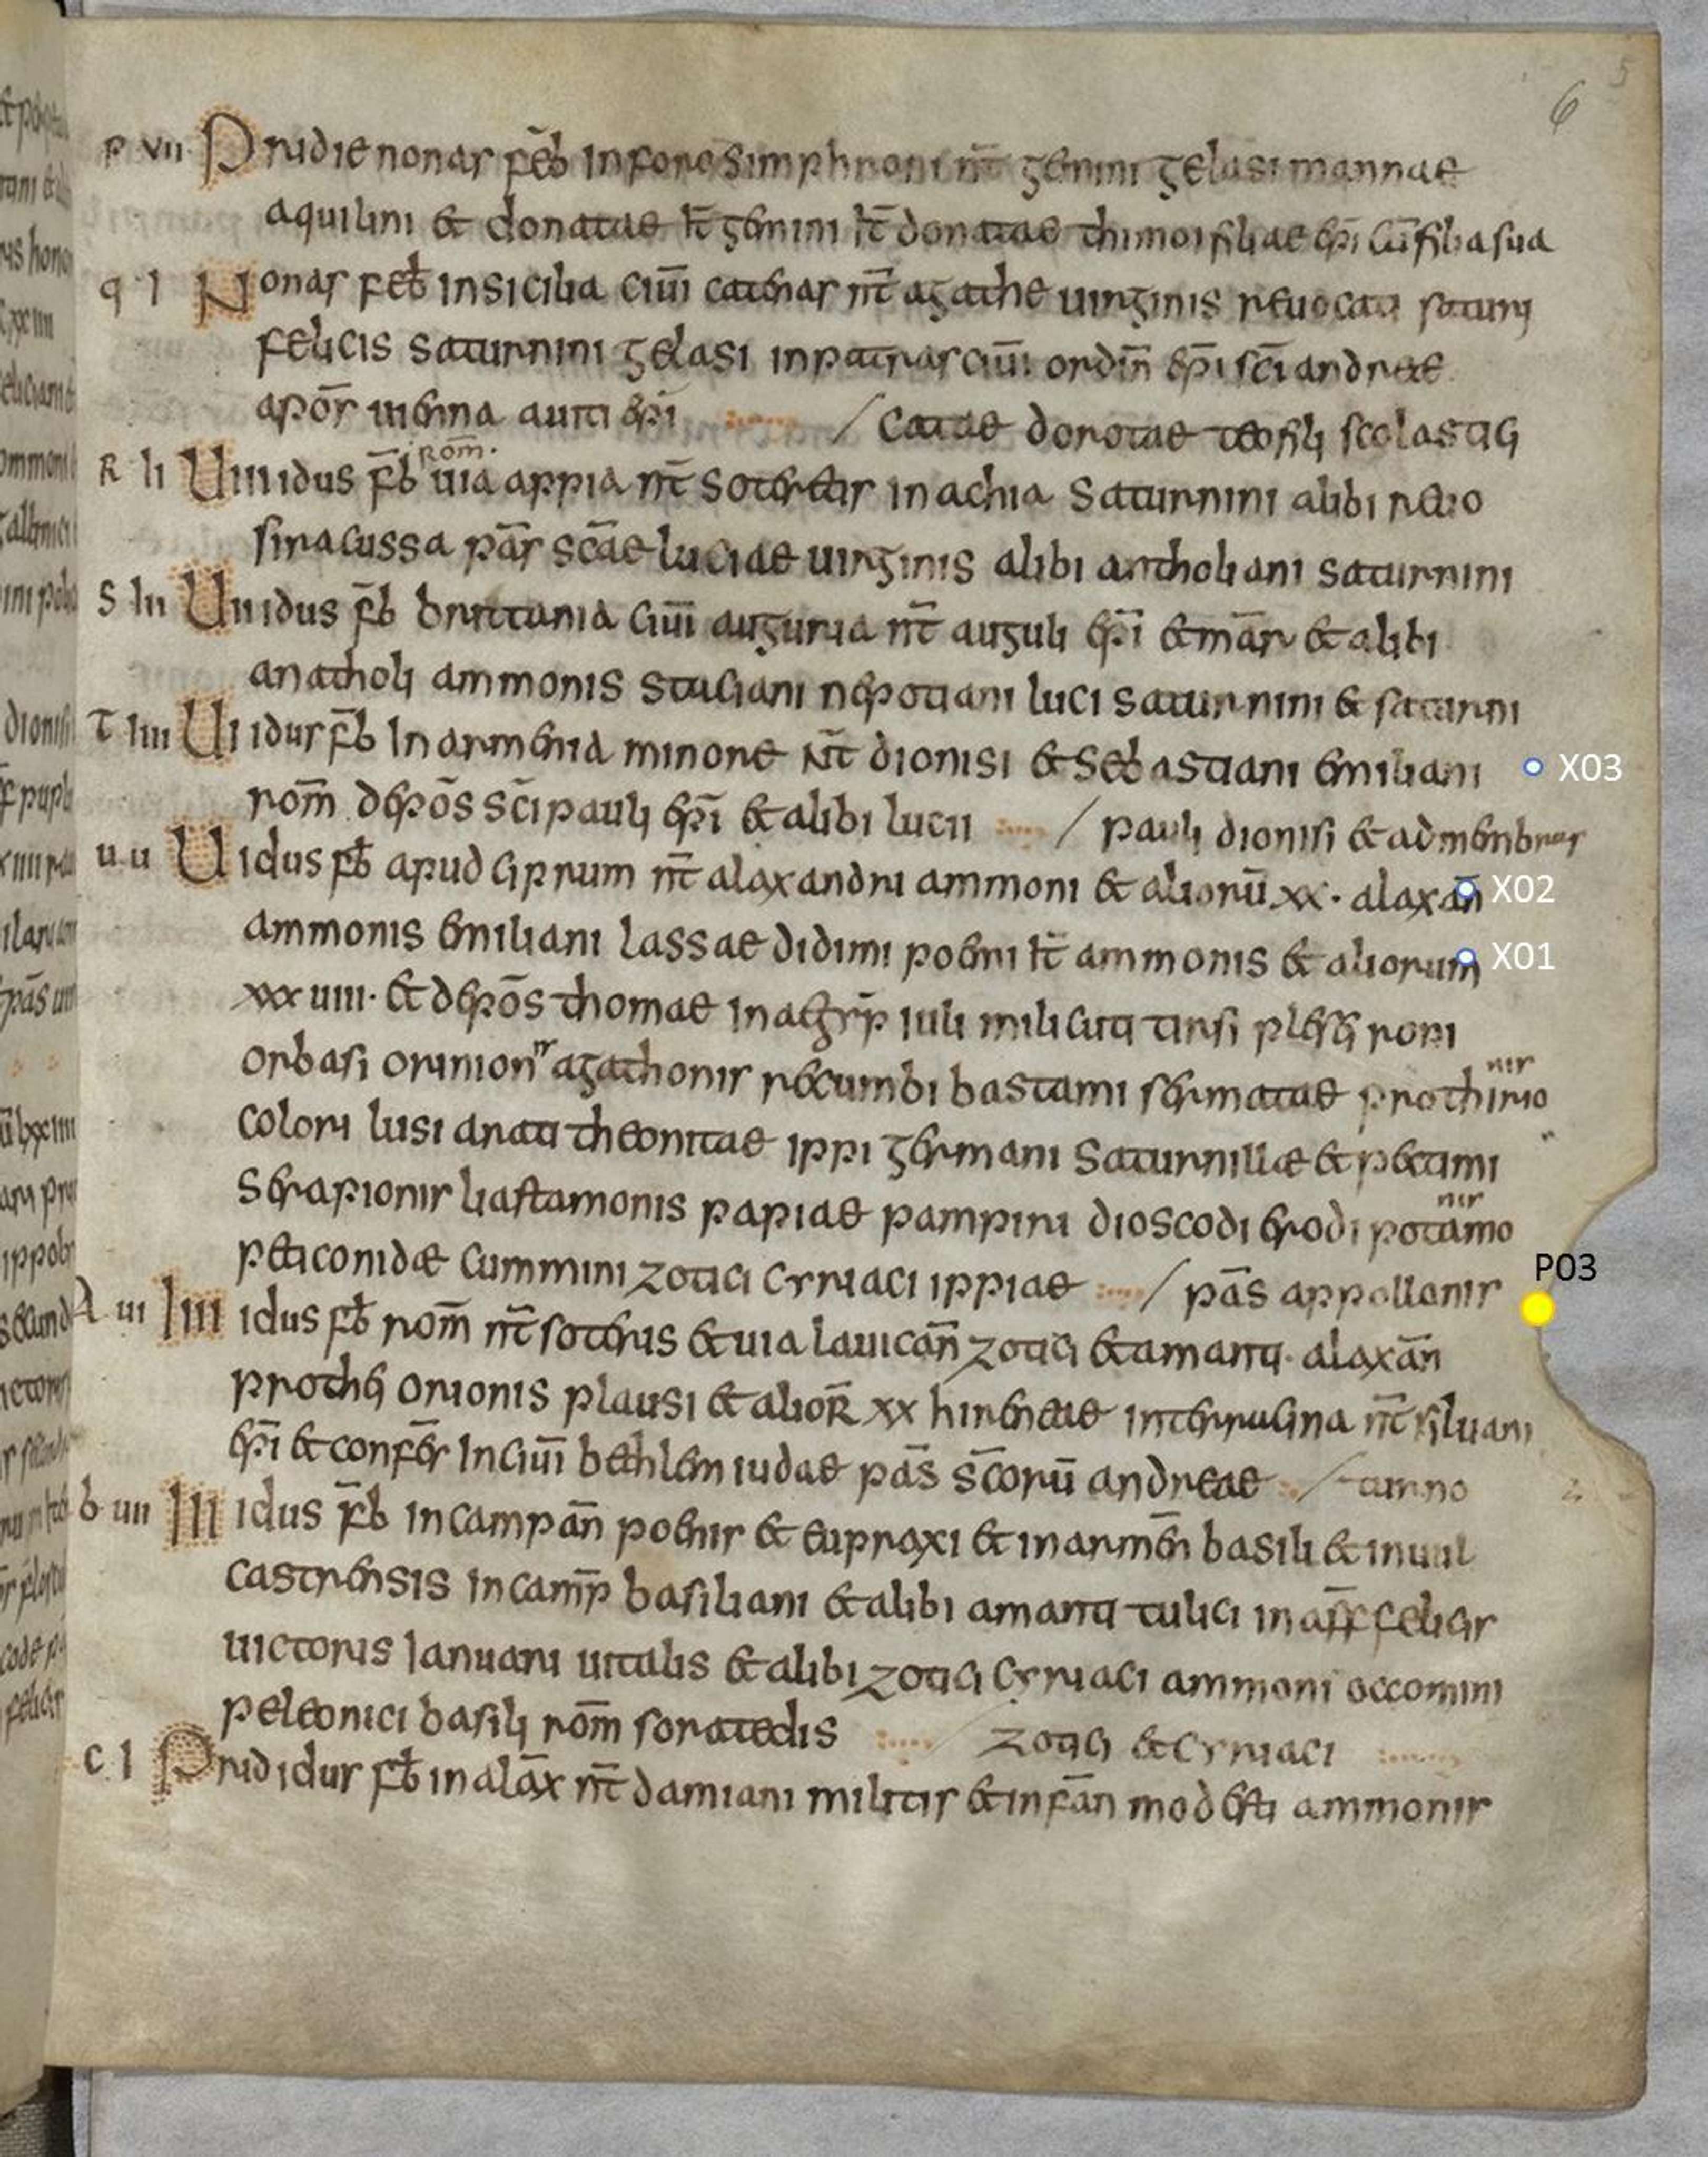 6 5
P VII Pridie nonas feb̄ in foro simphroni nt̄ gemini gelasi mannae
aquilini & donatae it̄ gemini it̄ donatae thimoi filiae ep̄i cū filia sua
q I Nonas feb̄ in sicilia ciui catenas nt̄ agathe uirginis reuocati saturi
felicis saturnini gelasi in patras ciui ordin̄ ep̄i sc̄i andreae
apos̄ uienna auiti ep̄i / catae donatae teofili scolastici
rom̄.
R II UIII idus feb̄ uia appia nt̄ soteretis in achia saturnini alibi reuo
siracussa pas̄ sc̄ae luciae uirginis alibi antholiani saturnini
S III UII idus feb̄ brittania ciui auguria nt̄ auguli ep̄i & mar̄ & alibi
anatholi ammonis statiani nepotiani luci saturnini & saturni
T IIII UI idus feb̄ In armenia minore Nt̄ dionisi & sebastiani emiliani
X03
rom̄ depos̄ sc̄i pauli ep̄i & alibi lucii / pauli dionisi & ad membres
u u U idus feb̄ apud ciprum nt̄ alaxandri ammoni & aliorū xx. alaxan̄
X02
ammonis emiliani lassae didimi poemi it̄ ammonis & aliorum
X01
xxuiii. & depos̄ thomae In aegip̄ iuli
orbasi orinionis agathonis recumbi bastami sermatae prothinionis
colori lusi anati theonitae ippi germani saturnillae & petami
serapionis liastamonis papiae pampini dioscodi erodi potamonis
peticonidae cummini zotici cyriaci ippiae / pas̄ appollonis
P03
A ui IIII idus feb̄ rom̄ nt̄ soteris & uia lauican̄ zotici & amanti. alaxan̄
prothei orionis plausi & alior̄ xx hirenaeae interrucina nt̄ siluani
ep̄i & confes̄ In ciui bethlem iudae pas̄ sc̄orū andreae / amno
b uii III idus feb̄ in campan̄ poenis & eupraxi & in armen̄ basili & in uul
castrensis in camp̄ basiliani & alibi amanti tulici in aff̄ felicis
uictoris Ianuari uitalis & alibi zotici cyriaci ammoni occomini
peleonici basili rom̄ soratedis zotici & cyriaci
C I Prid idus feb̄ in alax̄ nt̄ damiani militis & in fan̄ modesti ammonis